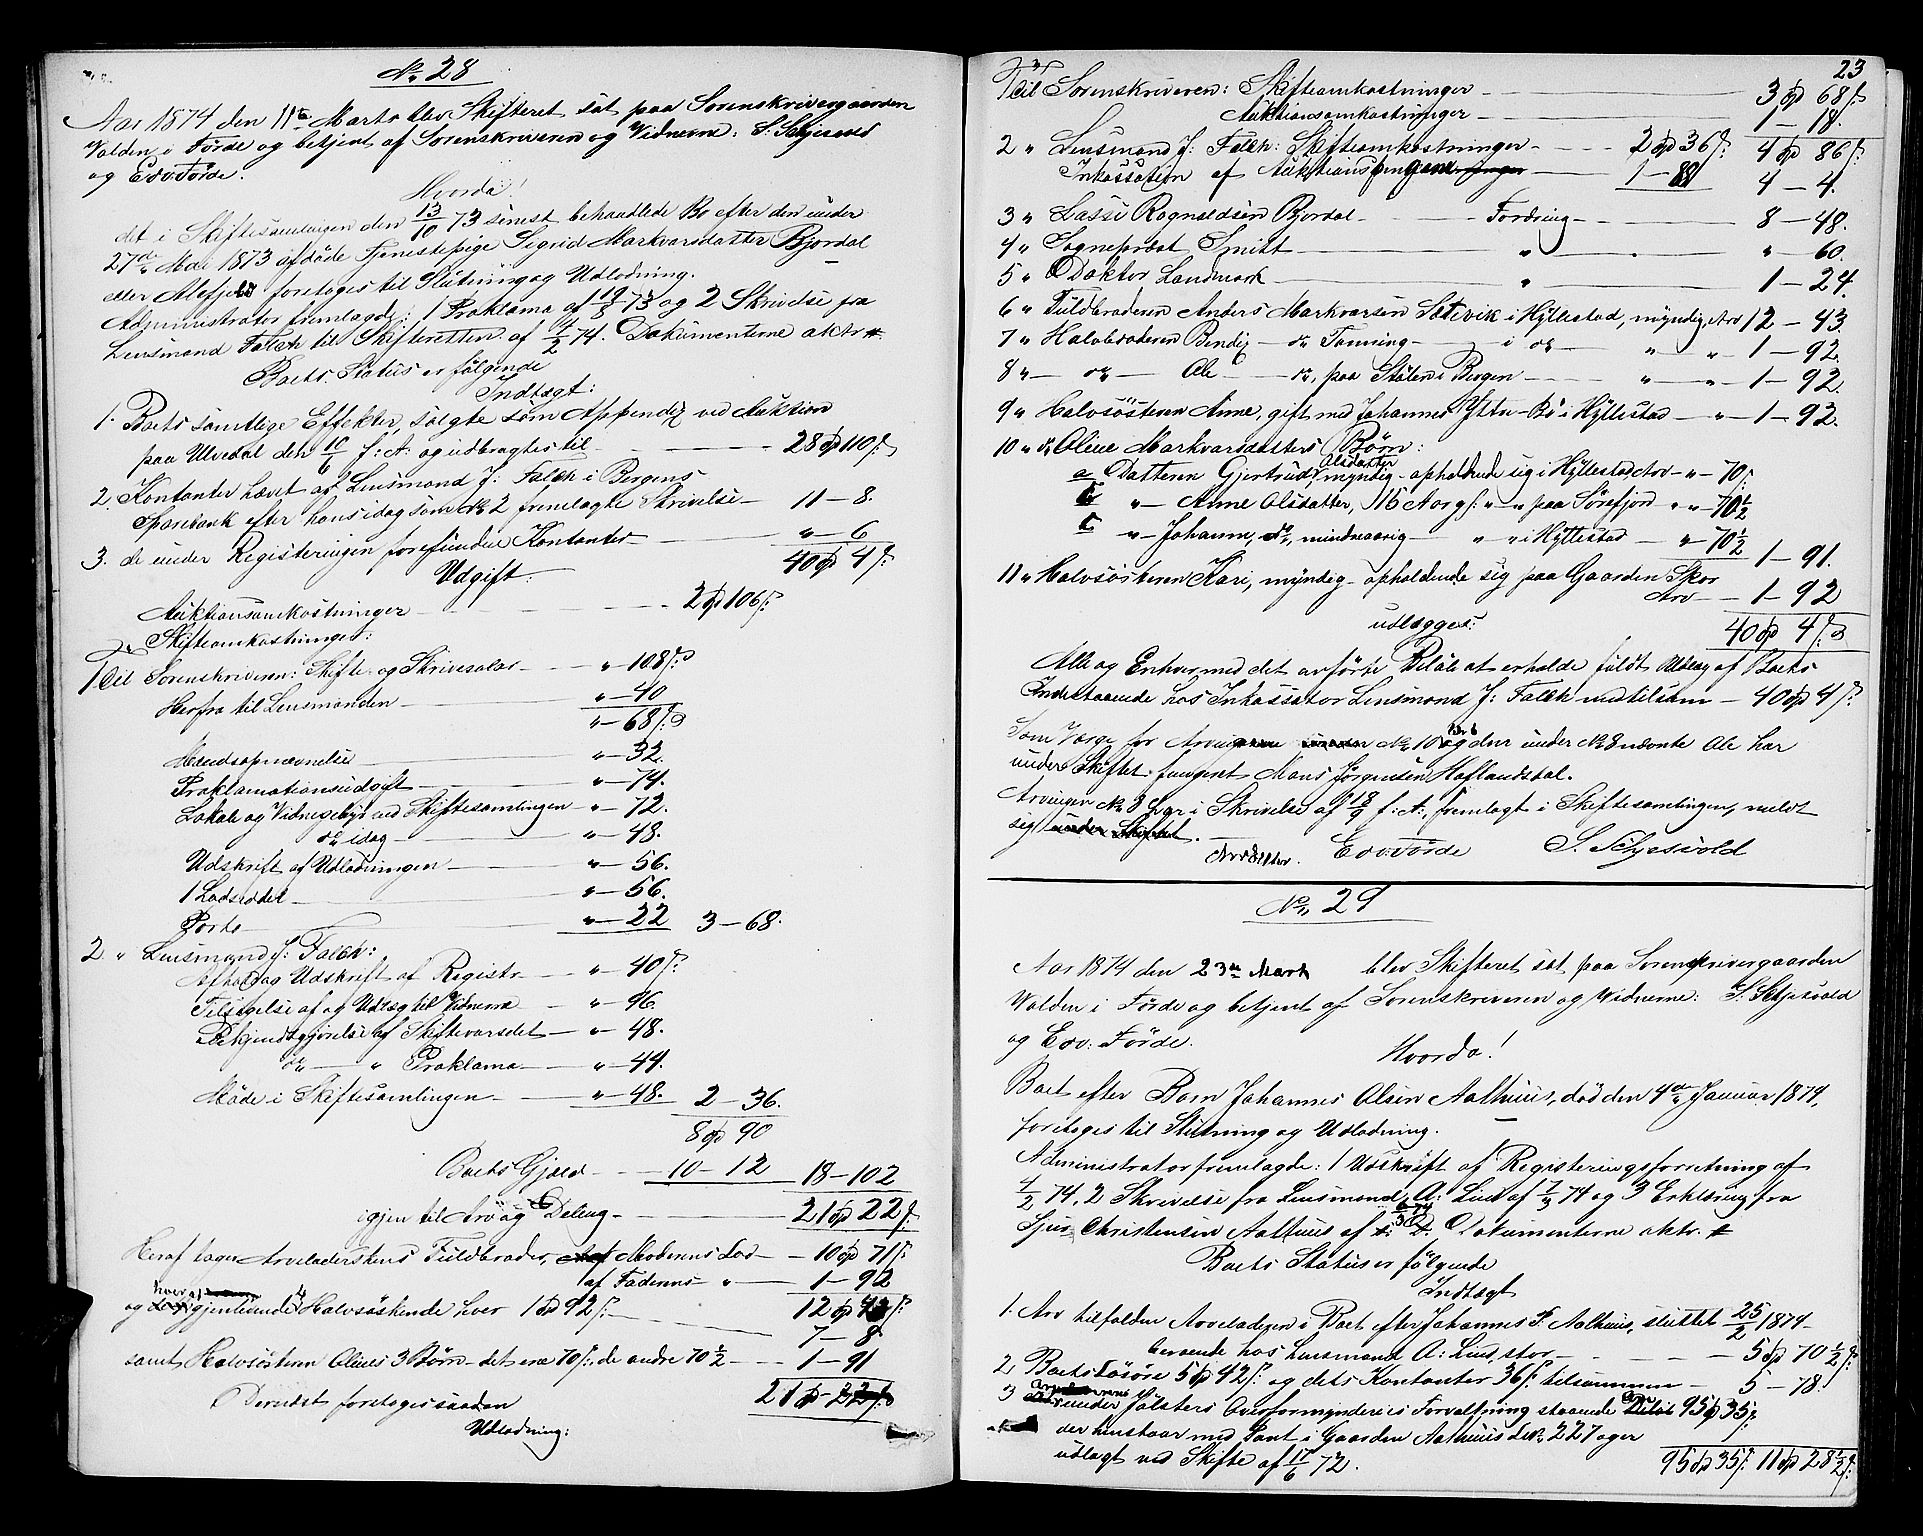 No 28
Aar 1874 den 11te Marts blev Skifteret sat paa Sorenskrivergaarden
Volden i Förde og betjent af Sorenskriveren og Vidnerne: S. Setjesvold
og Edv. Förde.
Hvorda!
det i Skiftesamlingen den 13/10 73 sidst behandlede Bo efter den under
27de Mai 1873 afdöde Tjenestepige Sigrid Markvarsdatter Bjordal
eller Alefjeld foretoges til Slutning og Udlodning.
Administrator fremlagde: 1 Proklama af 19/8 73 og 2 Skrivelse fra
Lensmand Falch til Skifteretten af 4/2 74. Dokumenterne aktr.
Boets Status er følgende
Indtægt:
1. Boets samtlige Effekter, solgte som Appendix ved Auktion
paa Ulvedal den 10/6 f: A: og udbragtes til — 28 Sp 110 s:
2. Kontanter hævet af Lensmand J. Falch i Bergens
Sparebank efter hans idag som No 2 fremlagte Skrivelse — 11 – 8.
3. de under Registeringen forefundne Kontanter — " – 6
40 Sp 4 s:
Udgift:
Auktionsomkostninger — 2 Sp 106 s:
Skifteomkostninger:
1 Til Sorenskriveren: Skifte- og Skrivesalær — " – 108 s:
Herfra til Lensmanden — " – 40
" – 68 s:
Mændsopnævnelse — " – 32.
Proklamationsudgift — " – 74.
Lokale og Vidnegebyr ved Skiftesamlingen — " – 72.
do idag — " – 48.
Udskrift af Udlodningen — " – 56.
1 Lodseddel — " – 56.
Porto — " – 22 3 – 68.
2 " Lensmand J. Falch:
Afhold og Udskrift af Registr. — " – 40 s:
Tilsigelse af og Udlæg til Vidnerne — " – 96
Bekjendtgjörelse af Skiftevarslet — " – 48.
do — " Proklama — " – 44.
Möde i Skiftesamlingen — " – 48. 2 – 36.
8 Sp 90
Boets Gjæld — 10 – 12 18 – 102
igjen til Arv og Deling — 21 Sp 22 s:
Heraf tager Arveladerskens Fuldbroder, af Moderens Lod — 10 Sp 71 s:
af Faderens " — 1 – 92
12 Sp 43 s:
og hver af de igjenlevende 4 Halvsöskende hver 1 Sp 92 s: — 7 – 8
samt Halvsösteren Olines 3 Börn – det ene 70 s:, de andre 70 1/2 — 1 – 91
21 Sp – 22 s:
Dernæst foretoges saadan
Udlodning:
23
1 Til Sorenskriveren: Skifteomkostninger — 3 Sp 68 s:
Auktionsomkostninger — 1 – 18.
4 Sp 86 s:
2 " Lensmand J: Falch: Skifteomkostninger — 2 Sp 36 s:
Inkassation af Auktionspengene — 1 – 88 4 – 4.
3 " Lasse Rognaldsen Bjordal — Fordring — 8 – 48.
4 " Sogneprest Smitt — " — " – 60.
5 " Doktor Landmark — " — 1 – 24.
6 " Fuldbroderen Anders Markvarsen Sætevik i Hyllestad, myndig, Arv 12 – 43.
7 " Halvbroderen Bendix — do Tonning — i do — " " – 1 – 92.
8 " — do — Ole — do, paa Stölen i Bergen — " — " – 1 – 92.
9 " Halvsösteren Anne, gift med Johannes Ytre-Bö i Hyllestad — " – 1 – 92.
10 " do Oline Markvarsdatters Börn:
a Datteren Gjertrud Olsdatter, myndig – opholdende sig i Hyllestad Arv – " – 70 s:
b " – Anne Olsdatter, 16 Aar gl: " – " paa Sörefjord " " – 70 1/2
c " – Johanne, do, mindreaarig — " " i Hyllestad — " – 70 1/2 1 – 91.
11 " Halvsösteren Kari, myndig – opholdende sig paa Gaarden Skor
Arv — 1 – 92
udlægges: 40 Sp 4 s:
Alle og Enhver med det anförte Belöb at erholde fuldt Udlæg af Boets
Indestaaende hos Inkassator Lensmand J: Falch med tilsam — 40 Sp 4 s:
Som Værge for Arvingerne No 10 og den under No 8 nævnte Ole har
under Skiftet fungeret Mons Jörgensen Haflandsdal.
Arvingen No 8 har i Skrivelse af 18/9 f: A:, fremlagt i Skiftesamlingen, meldt
sig under Skiftet.
Edv. Förde S. Setjesvold
No 29
Aar 1874 den 23de Marts blev Skifteret sat paa Sorenskrivergaarden
Volden i Förde og betjent af Sorenskriveren og Vidnerne: S. Setjesvold
og Edv: Förde.
Hvorda!
Boet efter Barn Johannes Olsen Aalhuus, död den 4de Januar 1874,
foretoges til Slutning og Udlodning.
Administrator fremlagde: 1 Udskrift af Registeringsforretning af
4/2 74, 2 Skrivelse fra Lensmand A: Lind af 7/3 74 og 3 Erklæring fra
Sjur Christensen Aalhuus af s: D. Dokumenterne aktr.
Boets Status er følgende
Indtægt
1. Arv tilfalden Arveladeren i Boet efter Johannes F. Aalhuus, sluttet 25/2 1874
beroende hos Lensmand A: Lind, stor — 5 Sp 70 1/2 s:
2 Boets Lösöre 5 Sp 42 s: og dets Kontanter 36 s: tilsammen — 5 – 78.
3 under Jölsters Overformynderies Forvaltning staaende Arv 95 Sp 35 s:
der henstaar med Pant i Gaarden Aalhuus L.No 227 og er
udlagt ved Skifte af 17/6 72.
95 Sp 35 s: 11 Sp 28 1/2 s: